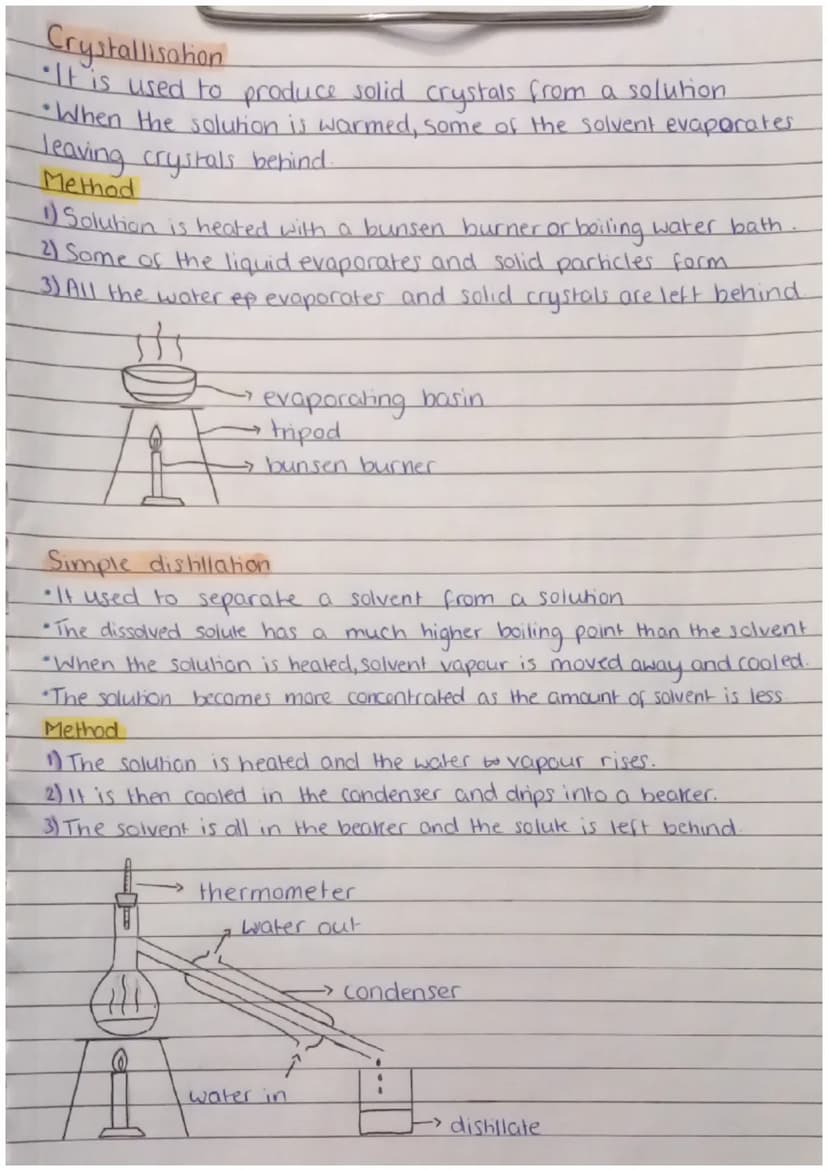 Crystallisation
•It is used to produce solid crystals from a solution
•When the solution is warmed, some of the solvent evaporates
leaving crystals behind.
Method
1) Solution is heated with a bunsen burner or boiling water bath.
2) Some of the liquid evaporates and solid particles form
3) All the water ep evaporates and solid crystals are left behind
evaporating basin
tripod
bunsen burner
Simple distillation
•It used to separate a solvent from a solution
•The dissolved solute has a much higher boiling point than the solvent
•When the solution is heated, solvent vapour is moved away and cooled.
•The solution becomes more concentrated as the amount of solvent is less
Method
1) The solution is heated and the water vapour rises.
2) It is then cooled in the condenser and drips into a beaker.
3) The solvent is all in the beaker and the solute is left behind.
thermometer
water out
condenser
water in
distillate